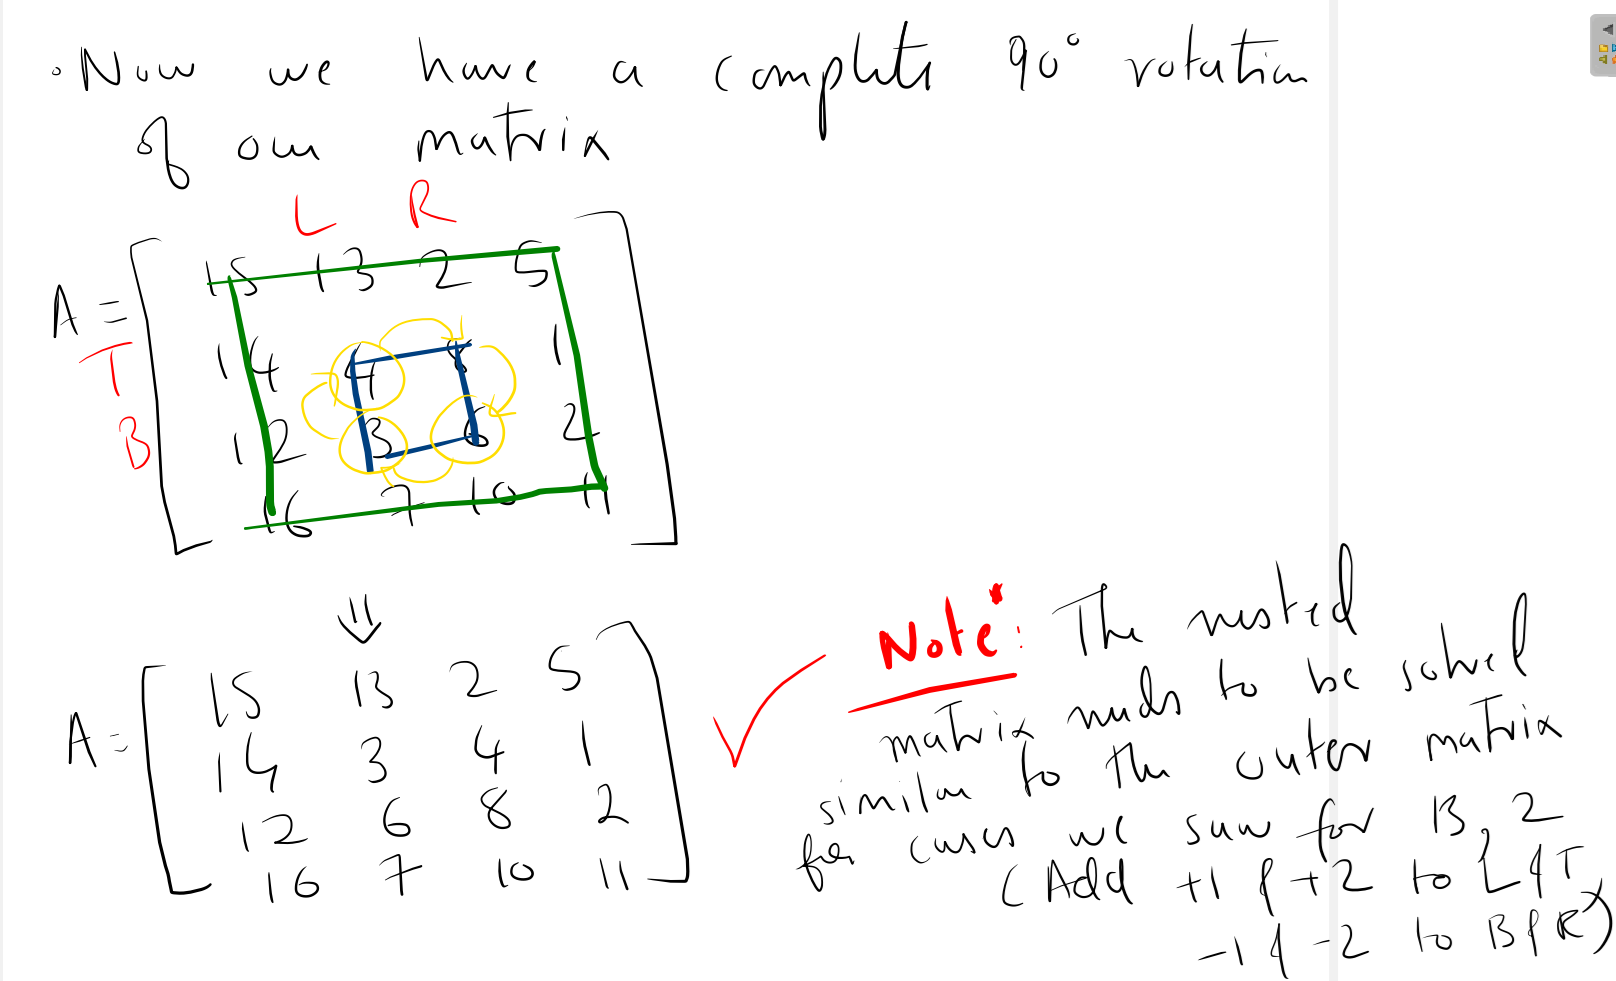 • Now we have a complete 90° rotation
of our matrix
L R
15 13 2 5
A =
T
14 4 8 1
B
12 3 6 2
16 7 10 11
⇓
15 13 2 5
A = 14 3 4 1
12 6 8 2
16 7 10 11
Note: The nested
matrix needs to be solved
similar to the outer matrix
for cases we saw for 13, 2
(Add +1 & +2 to L & T
-1 & -2 to B & R)